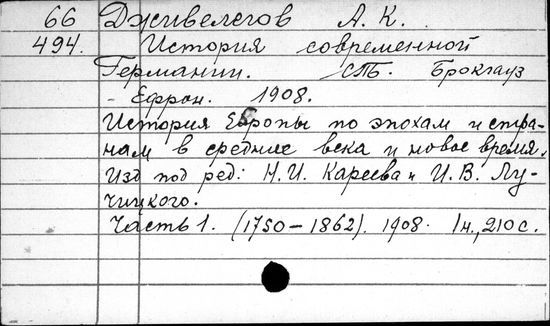 66 Дживелегов А. К.
494. История современной
Германии. СПБ. Брокгауз
- Ефрон. 1908.
История Европы по эпохам и стра-
нам в средние века и новое время.
Изд под ред: Н. И. Кареева и И. В. Лу-
чицкого.
Часть 1. (1750-1862). 1908. 1н., 210 с.